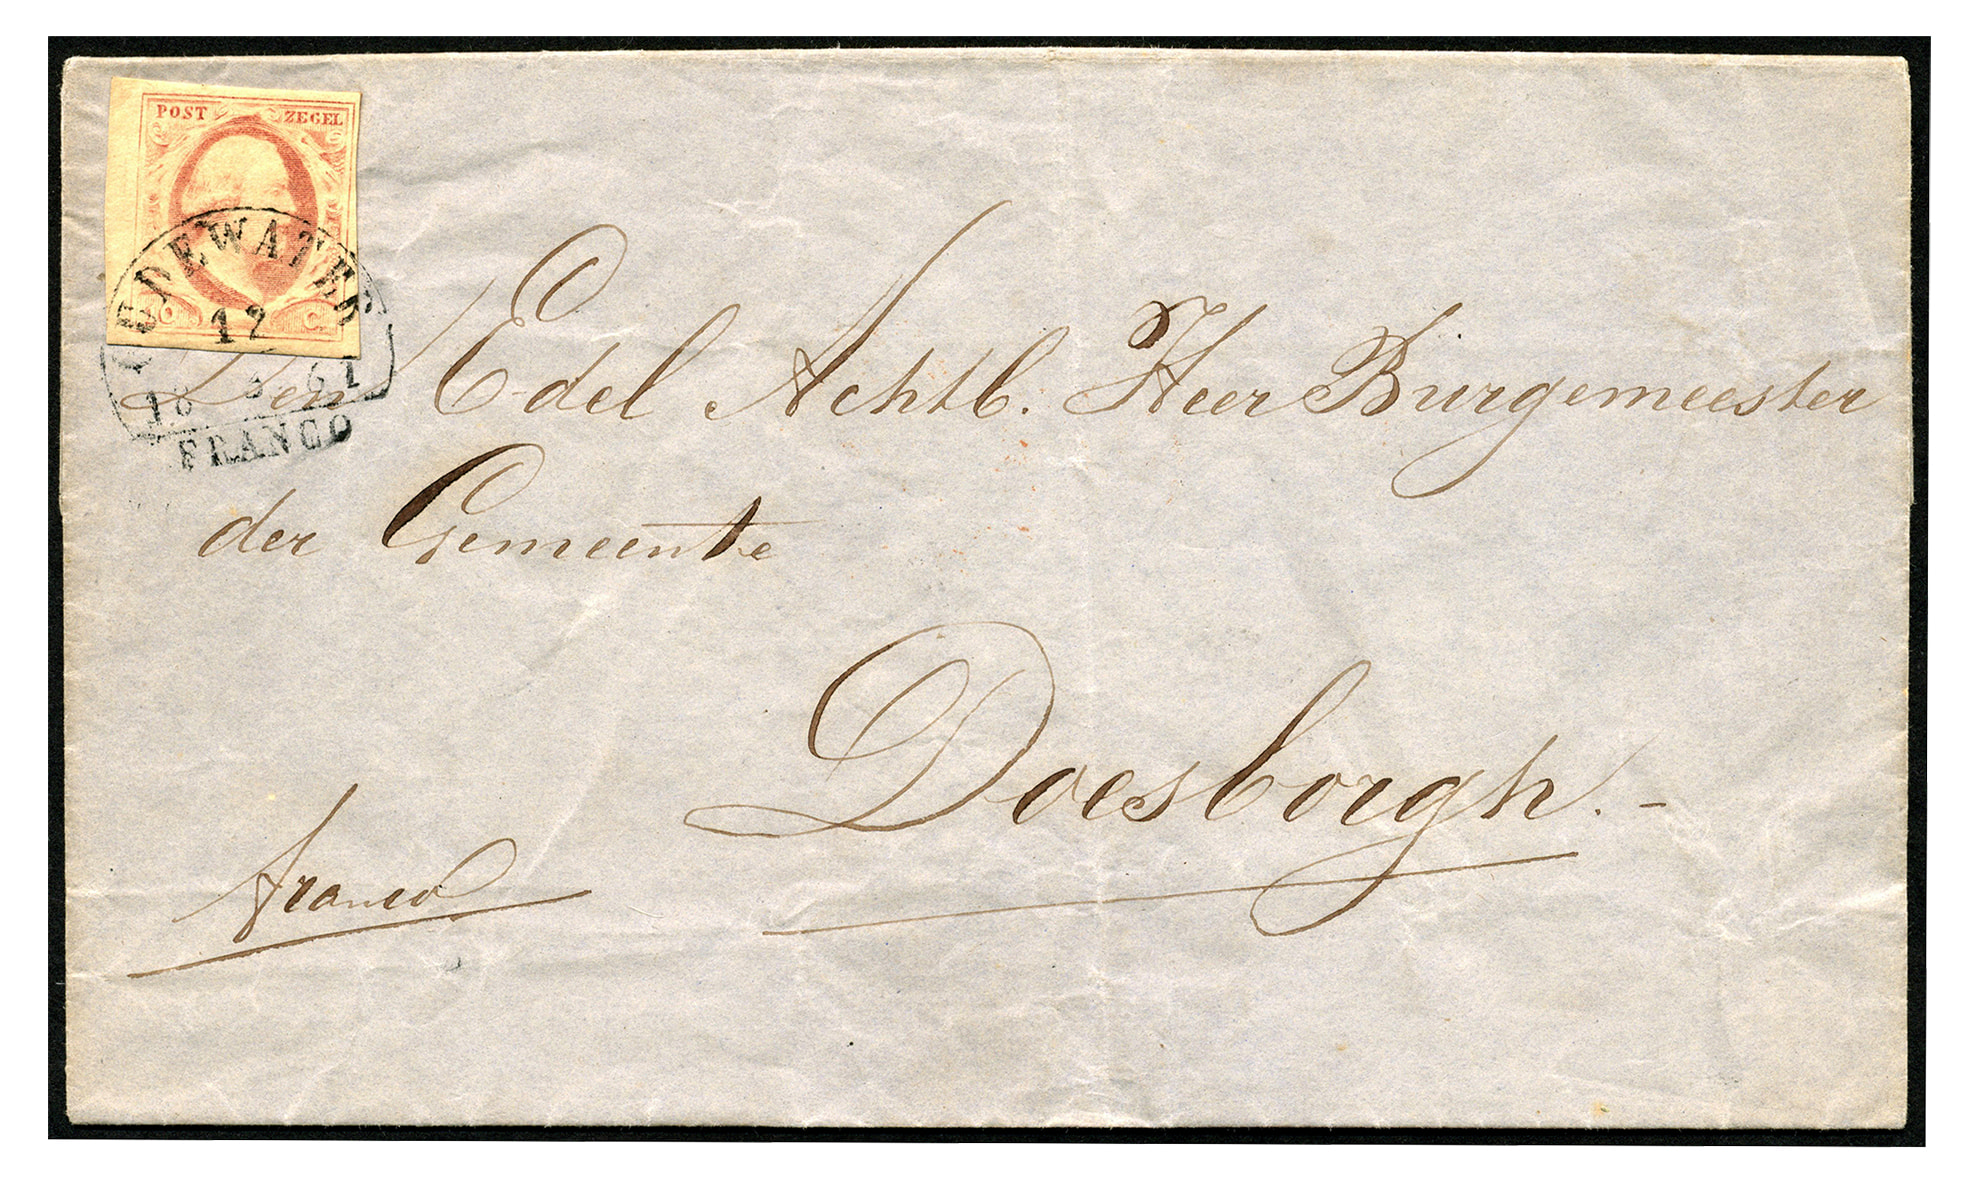 POST ZEGEL
OUDEWATER
12
18 3 61
FRANCO
Den Edel Achtb. Heer Burgemeester
der Gemeente
Doesborgh. -
franco